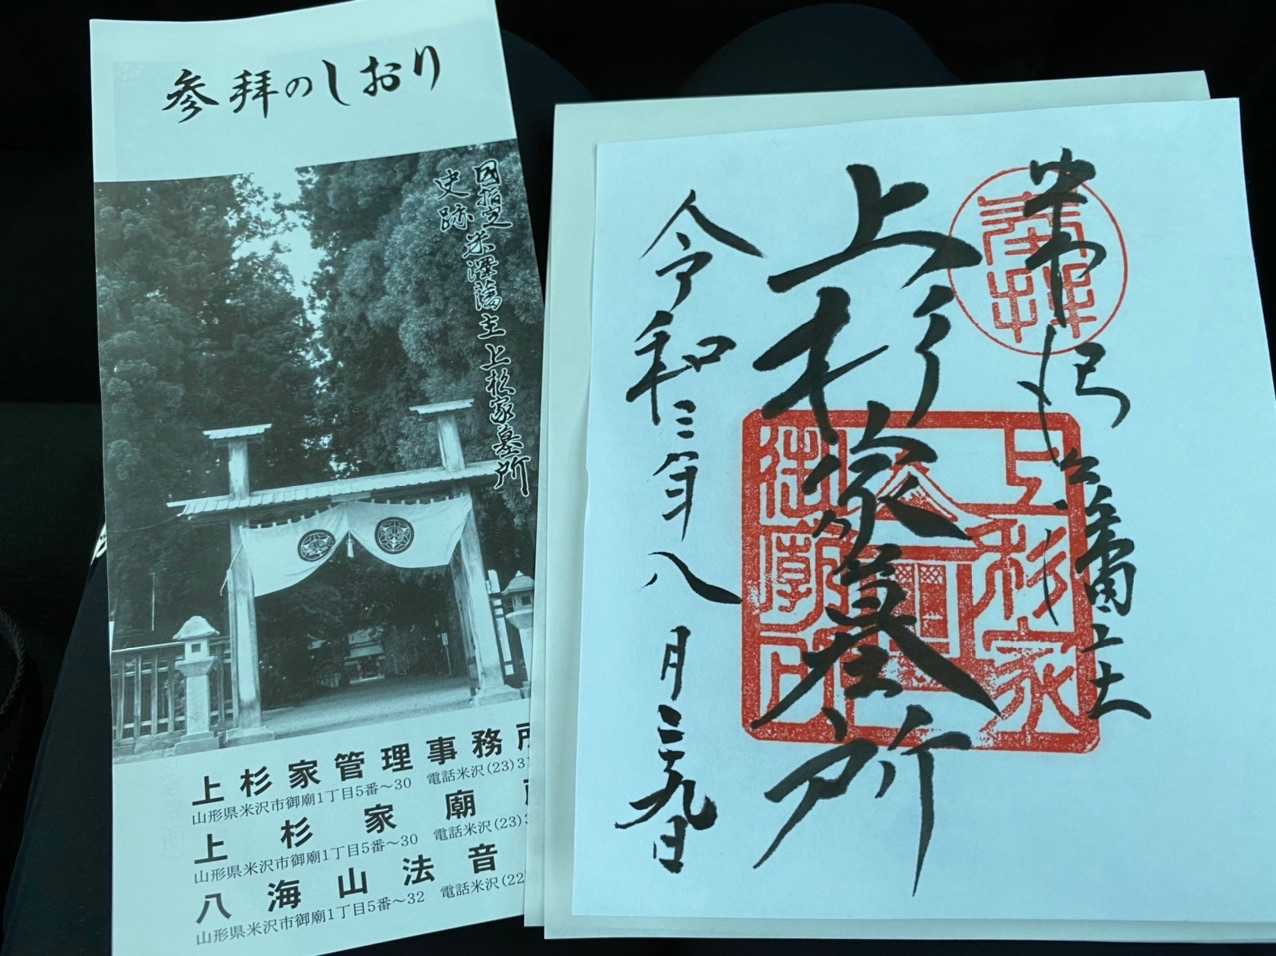 参拝のしおり
國指定
史跡
米澤藩主上杉家墓所
上杉家管理事務所
山形県米沢市御廟1丁目5番〜30 電話米沢(23)3
上杉家廟
山形県米沢市御廟1丁目5番〜30 電話米沢(23)3
八海山法音
山形県米沢市御廟1丁目5番〜32 電話米沢(22
奉拝
米沢藩主
上杉家墓所
上杉家
御廟所
令和三年八月二十九日